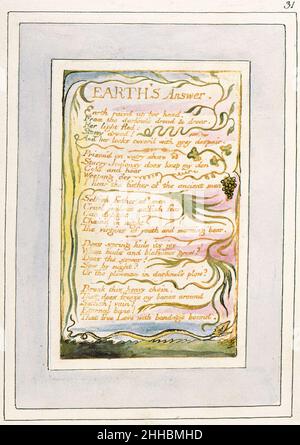 31
EARTH'S Answer.
Earth raisd up her head,
From the darkness dread & drear.
Her light fled:
Stony dread!
And her locks cover'd with grey despair.
Prison'd on watry shore
Starry Jealousy does keep my den
Cold and hoar
Weeping o'er
I hear the father of the ancient men
Selfish father of men
Cruel jealous selfish fear
Can delight
Chain'd in night
The virgins of youth and morning bear.
Does spring hide its joy
When buds and blossoms grow?
Does the sower?
Sow by night?
Or the plowman in darkness plow?
Break this heavy chain,
That does freeze my bones around
Selfish! vain!
Eternal bane!
That free Love with bondage bound.
alamy
Image ID: 2HHBMHD
www.alamy.com